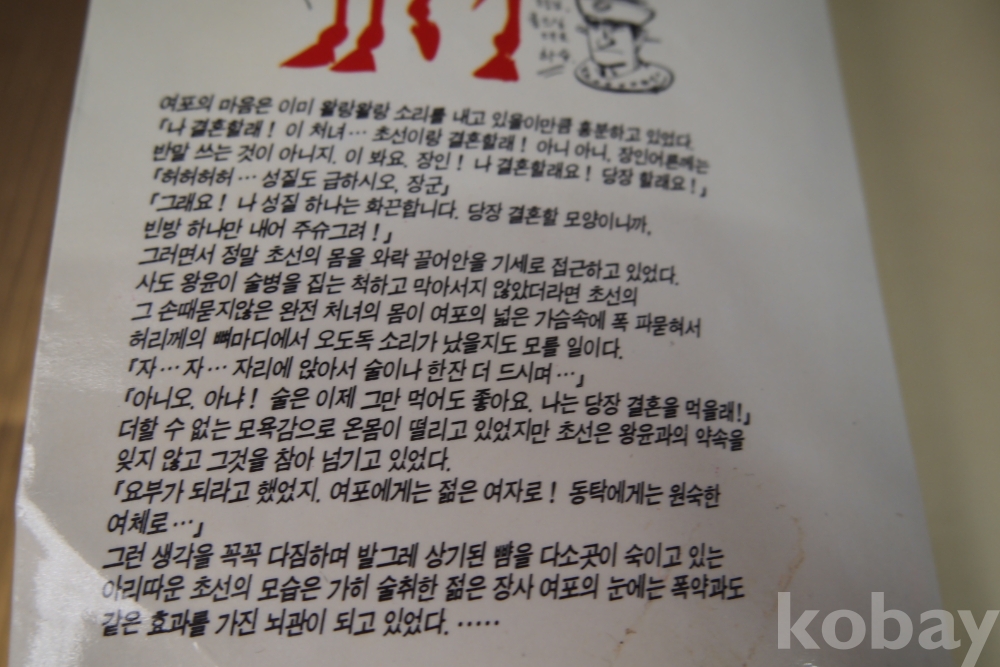 여포의 마음은 이미 왈랑왈랑 소리를 내고 있을이만큼 흥분하고 있었다.
『나 결혼할래! 이 처녀… 초선이랑 결혼할래! 아니 아니, 장인어른께는
반말 쓰는 것이 아니지. 이 봐요, 장인! 나 결혼할래요! 당장 할래요!』
『허허허허… 성질도 급하시오, 장군』
『그래요! 나 성질 하나는 화끈합니다. 당장 결혼할 모양이니까,
빈방 하나만 내어 주슈그려!』
그러면서 정말 초선의 몸을 와락 끌어안을 기세로 접근하고 있었다.
사도 왕윤이 술병을 집는 척하고 막아서지 않았더라면 초선의
그 손때묻지않은 완전 처녀의 몸이 여포의 넓은 가슴속에 폭 파묻혀서
허리께의 뼈마디에서 오도독 소리가 났을지도 모를 일이다.
『자… 자… 자리에 앉아서 술이나 한잔 더 드시며…』
『아니오. 아냐! 술은 이제 그만 먹어도 좋아요. 나는 당장 결혼을 먹을래!』
더할 수 없는 모욕감으로 온몸이 떨리고 있었지만 초선은 왕윤과의 약속을
잊지 않고 그것을 참아 넘기고 있었다.
『요부가 되라고 했었지. 여포에게는 젊은 여자로! 동탁에게는 원숙한
여체로…』
그런 생각을 꼭꼭 다짐하며 발그레 상기된 뺨을 다소곳이 숙이고 있는
아리따운 초선의 모습은 가히 술취한 젊은 장사 여포의 눈에는 폭약과도
같은 효과를 가진 뇌관이 되고 있었다. ……
kobay